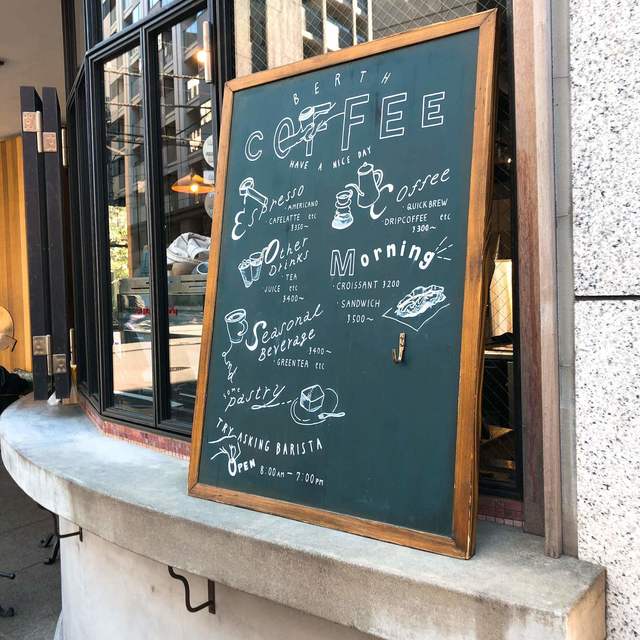 BERTH
COFFEE
HAVE A NICE DAY
Espresso
·AMERICANO
CAFELATTE etc
¥350~
Coffee
·QUICKBREW
DRIPCOFFEE etc
¥300~
Other
Drinks
·TEA
JUICE etc
¥400~
Morning
·CROISSANT ¥200
·SANDWICH
¥500~
Seasonal
Beverage
¥400~
·GREENTEA etc
some
Pastry...
TRY ASKING BARISTA
OPEN 8:00AM~7:00PM